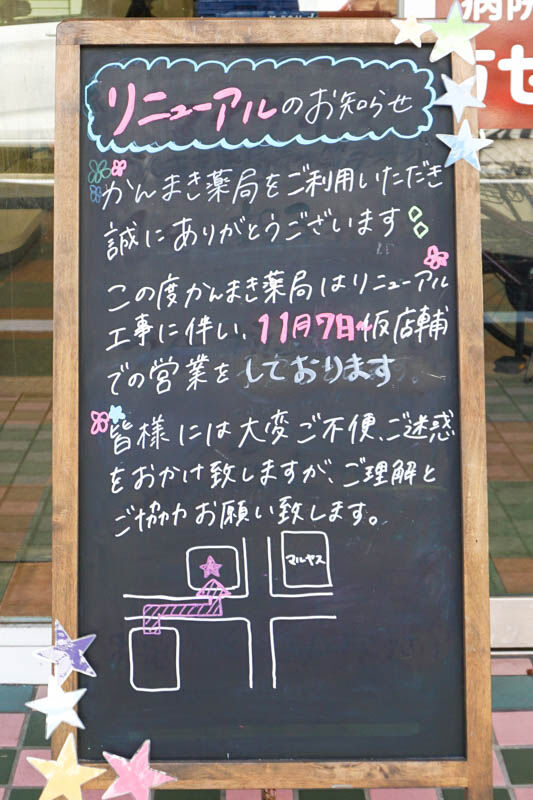 病院
リニューアルのお知らせ
かんまき薬局をご利用いただき
誠にありがとうございます
この度かんまき薬局はリニューアル
工事に伴い、11月7日~仮店舗
での営業をしております
皆様には大変ご不便、ご迷惑
をおかけ致しますが、ご理解と
ご協力お願い致します。
マルヤス